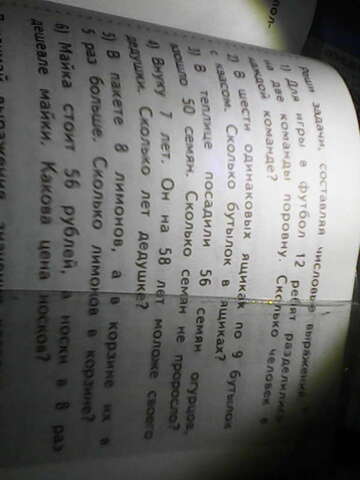 Реши задачи, составляя числовые выражения
1) Для игры в футбол 12 ребят разделились
на две команды поровну. Сколько человек в
каждой команде?
2) В шести одинаковых ящиках по 9 бутылок
с квасом. Сколько бутылок в ящиках?
3) В теплице посадили 56 семян огурцов,
взошло 50 семян. Сколько семян не проросло?
4) Внуку 7 лет. Он на 58 лет моложе своего
дедушки. Сколько лет дедушке?
5) В пакете 8 лимонов, а в корзине их в
5 раз больше. Сколько лимонов в корзине?
6) Майка стоит 56 рублей, а носки в 8 раз
дешевле майки. Какова цена носков?